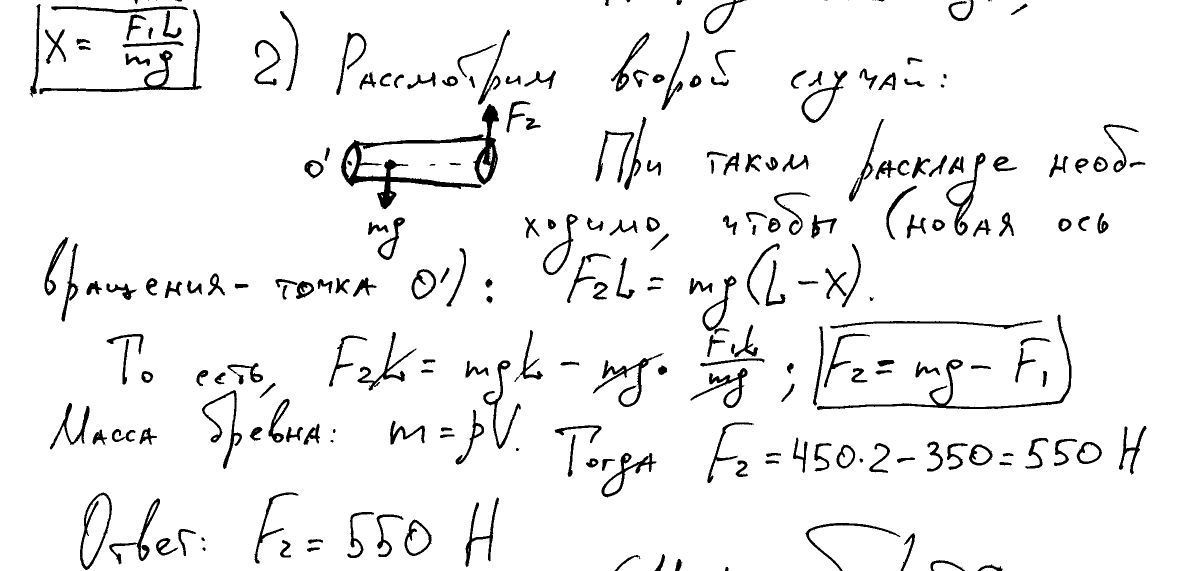 X = F₁L / mg 2) Рассмотрим второй случай:
F₂
O' При таком раскладе необ-
mg ходимо, чтобы (новая ось
вращения - точка O'): F₂L = mg(L - X).
То есть, F₂L = mgL - mg · F₁L / mg ; F₂ = mg - F₁
Масса бревна: m = ρV. Тогда F₂ = 450·2 - 350 = 550 Н
Ответ: F₂ = 550 Н